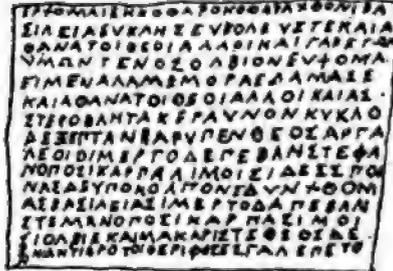 ΣΙΛΕΙΑΕΥΚΛΗΣΕΥΒΟΛΕΥΣΤΕΚΑΙΑ
ΘΑΝΑΤΟΙΘΕΟΙΑΛΛΟΙΚΑΙΓΑΡΕΓΩΝ
ΥΜΩΝΓΕΝΟΣΟΛΒΙΟΝΕΥΧΟΜΑ
ΕΙΜΕΝΑΛΑΜΕΜΟΡΑΕΔΑΜΑΣΕ
ΚΑΙΑΘΑΝΑΤΟΙΘΕΟΙΑΛΛΟΙΚΑΙΑΣ
ΣΤΕΡΟΒΛΗΤΑΚΕΡΑΥΝΟΝΚΥΚΛΟ
ΔΕΞΕΠΤΑΝΒΑΡΥΠΕΝΘΕΟΣΑΡΓΑ
ΛΕΟΙΟΙΜΕΡΤΟΔΕΠΕΒΑΝΣΤΕΦΑ
ΝΟΠΟΣΙΚΑΡΠΑΛΙΜΟΙΣΙΔΕΣΣΠΟΙ
ΝΑΣΔΥΠΟΚΟΛΠΟΝΕΔΥΝΧΘΟΝΙ
ΑΣΒΑΣΙΛΕΙΑΣΙΜΕΡΤΟΔΑΠΕΒΑΝ
ΣΤΕΜΑΝΟΠΟΣΙΚΑΡΠΑΣΙΜΟΙ
ΣΙΟΛΒΙΕΚΑΙΜΑΚΑΡΙΣΤΕΘΕΟΣΔΕ